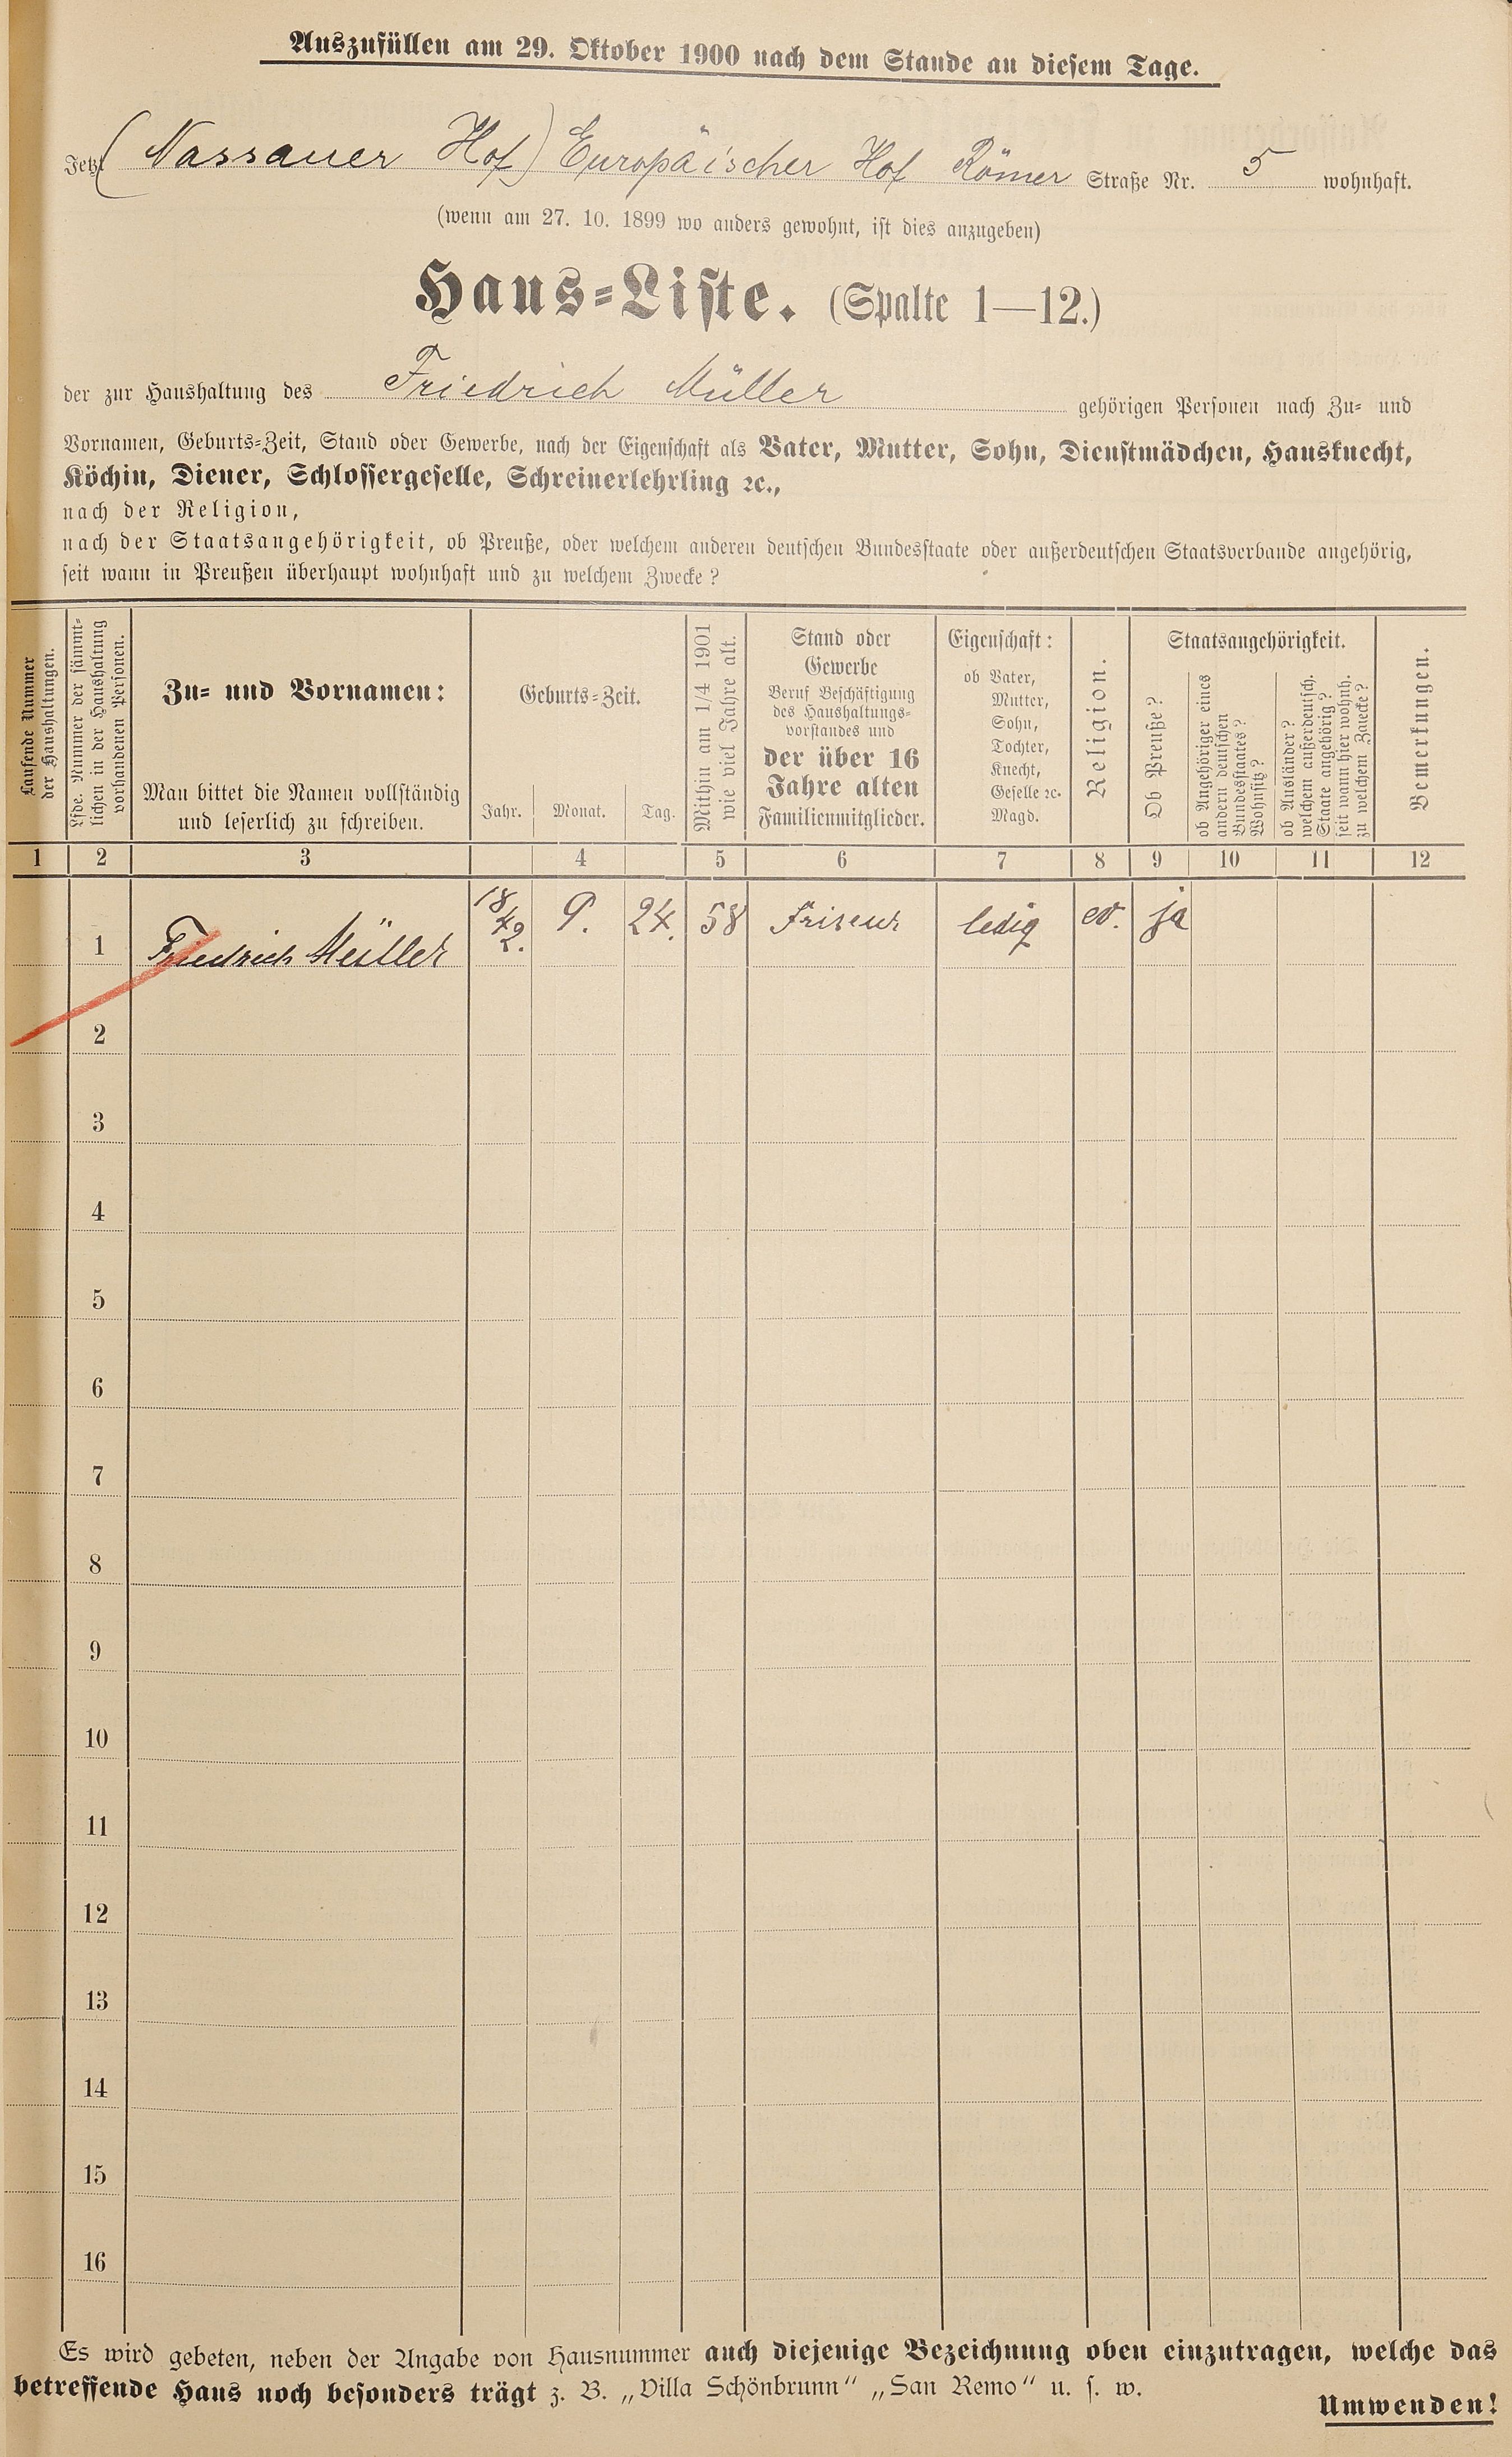 Auszufüllen am 29. Oktober 1900 nach dem Stande an diesem Tage.
Jetzt (Nassauer Hof) Europäischer Hof Römer Straße Nr. 5 wohnhaft.
(wenn am 27. 10. 1899 wo anders gewohnt, ist dies anzugeben)
Haus-Liste. (Spalte 1—12.)
der zur Haushaltung des Friedrich Müller gehörigen Personen nach Zu- und
Vornamen, Geburts-Zeit, Stand oder Gewerbe, nach der Eigenschaft als Vater, Mutter, Sohn, Dienstmädchen, Hausknecht,
Köchin, Diener, Schlossergeselle, Schreinerlehrling ꝛc.,
nach der Religion,
nach der Staatsangehörigkeit, ob Preuße, oder welchem anderen deutschen Bundesstaate oder außerdeutschen Staatsverbande angehörig,
seit wann in Preußen überhaupt wohnhaft und zu welchem Zwecke?
Laufende Nummer
der Haushaltungen.
Lfde. Nummer der sämmt-
lichen in der Haushaltung
vorhandenen Personen.
Zu- und Vornamen:
Man bittet die Namen vollständig
und leserlich zu schreiben.
Geburts-Zeit.
Jahr. Monat. Tag.
Mithin am 1/4 1901
wie viel Jahre alt.
Stand oder
Gewerbe
Beruf Beschäftigung
des Haushaltungs-
vorstandes und
der über 16
Jahre alten
Familienmitglieder.
Eigenschaft:
ob Vater,
Mutter,
Sohn,
Tochter,
Knecht,
Geselle ꝛc.
Magd.
Religion.
Staatsangehörigkeit.
Ob Preuße?
ob Angehöriger eines
andern deutschen
Bundesstaates?
Wohnsitz?
ob Ausländer?
welchem außerdeutsch.
Staate angehörig?
seit wann hier wohnh.
zu welchem Zwecke?
Bemerkungen.
1 2 3 4 5 6 7 8 9 10 11 12
1 Friedrich Müller 1842. 9. 24. 58 Friseur ledig ev. ja
2
3
4
5
6
7
8
9
10
11
12
13
14
15
16
Es wird gebeten, neben der Angabe von Hausnummer auch diejenige Bezeichnung oben einzutragen, welche das
betreffende Haus noch besonders trägt z. B. „Villa Schönbrunn“ „San Remo“ u. s. w.
Umwenden!